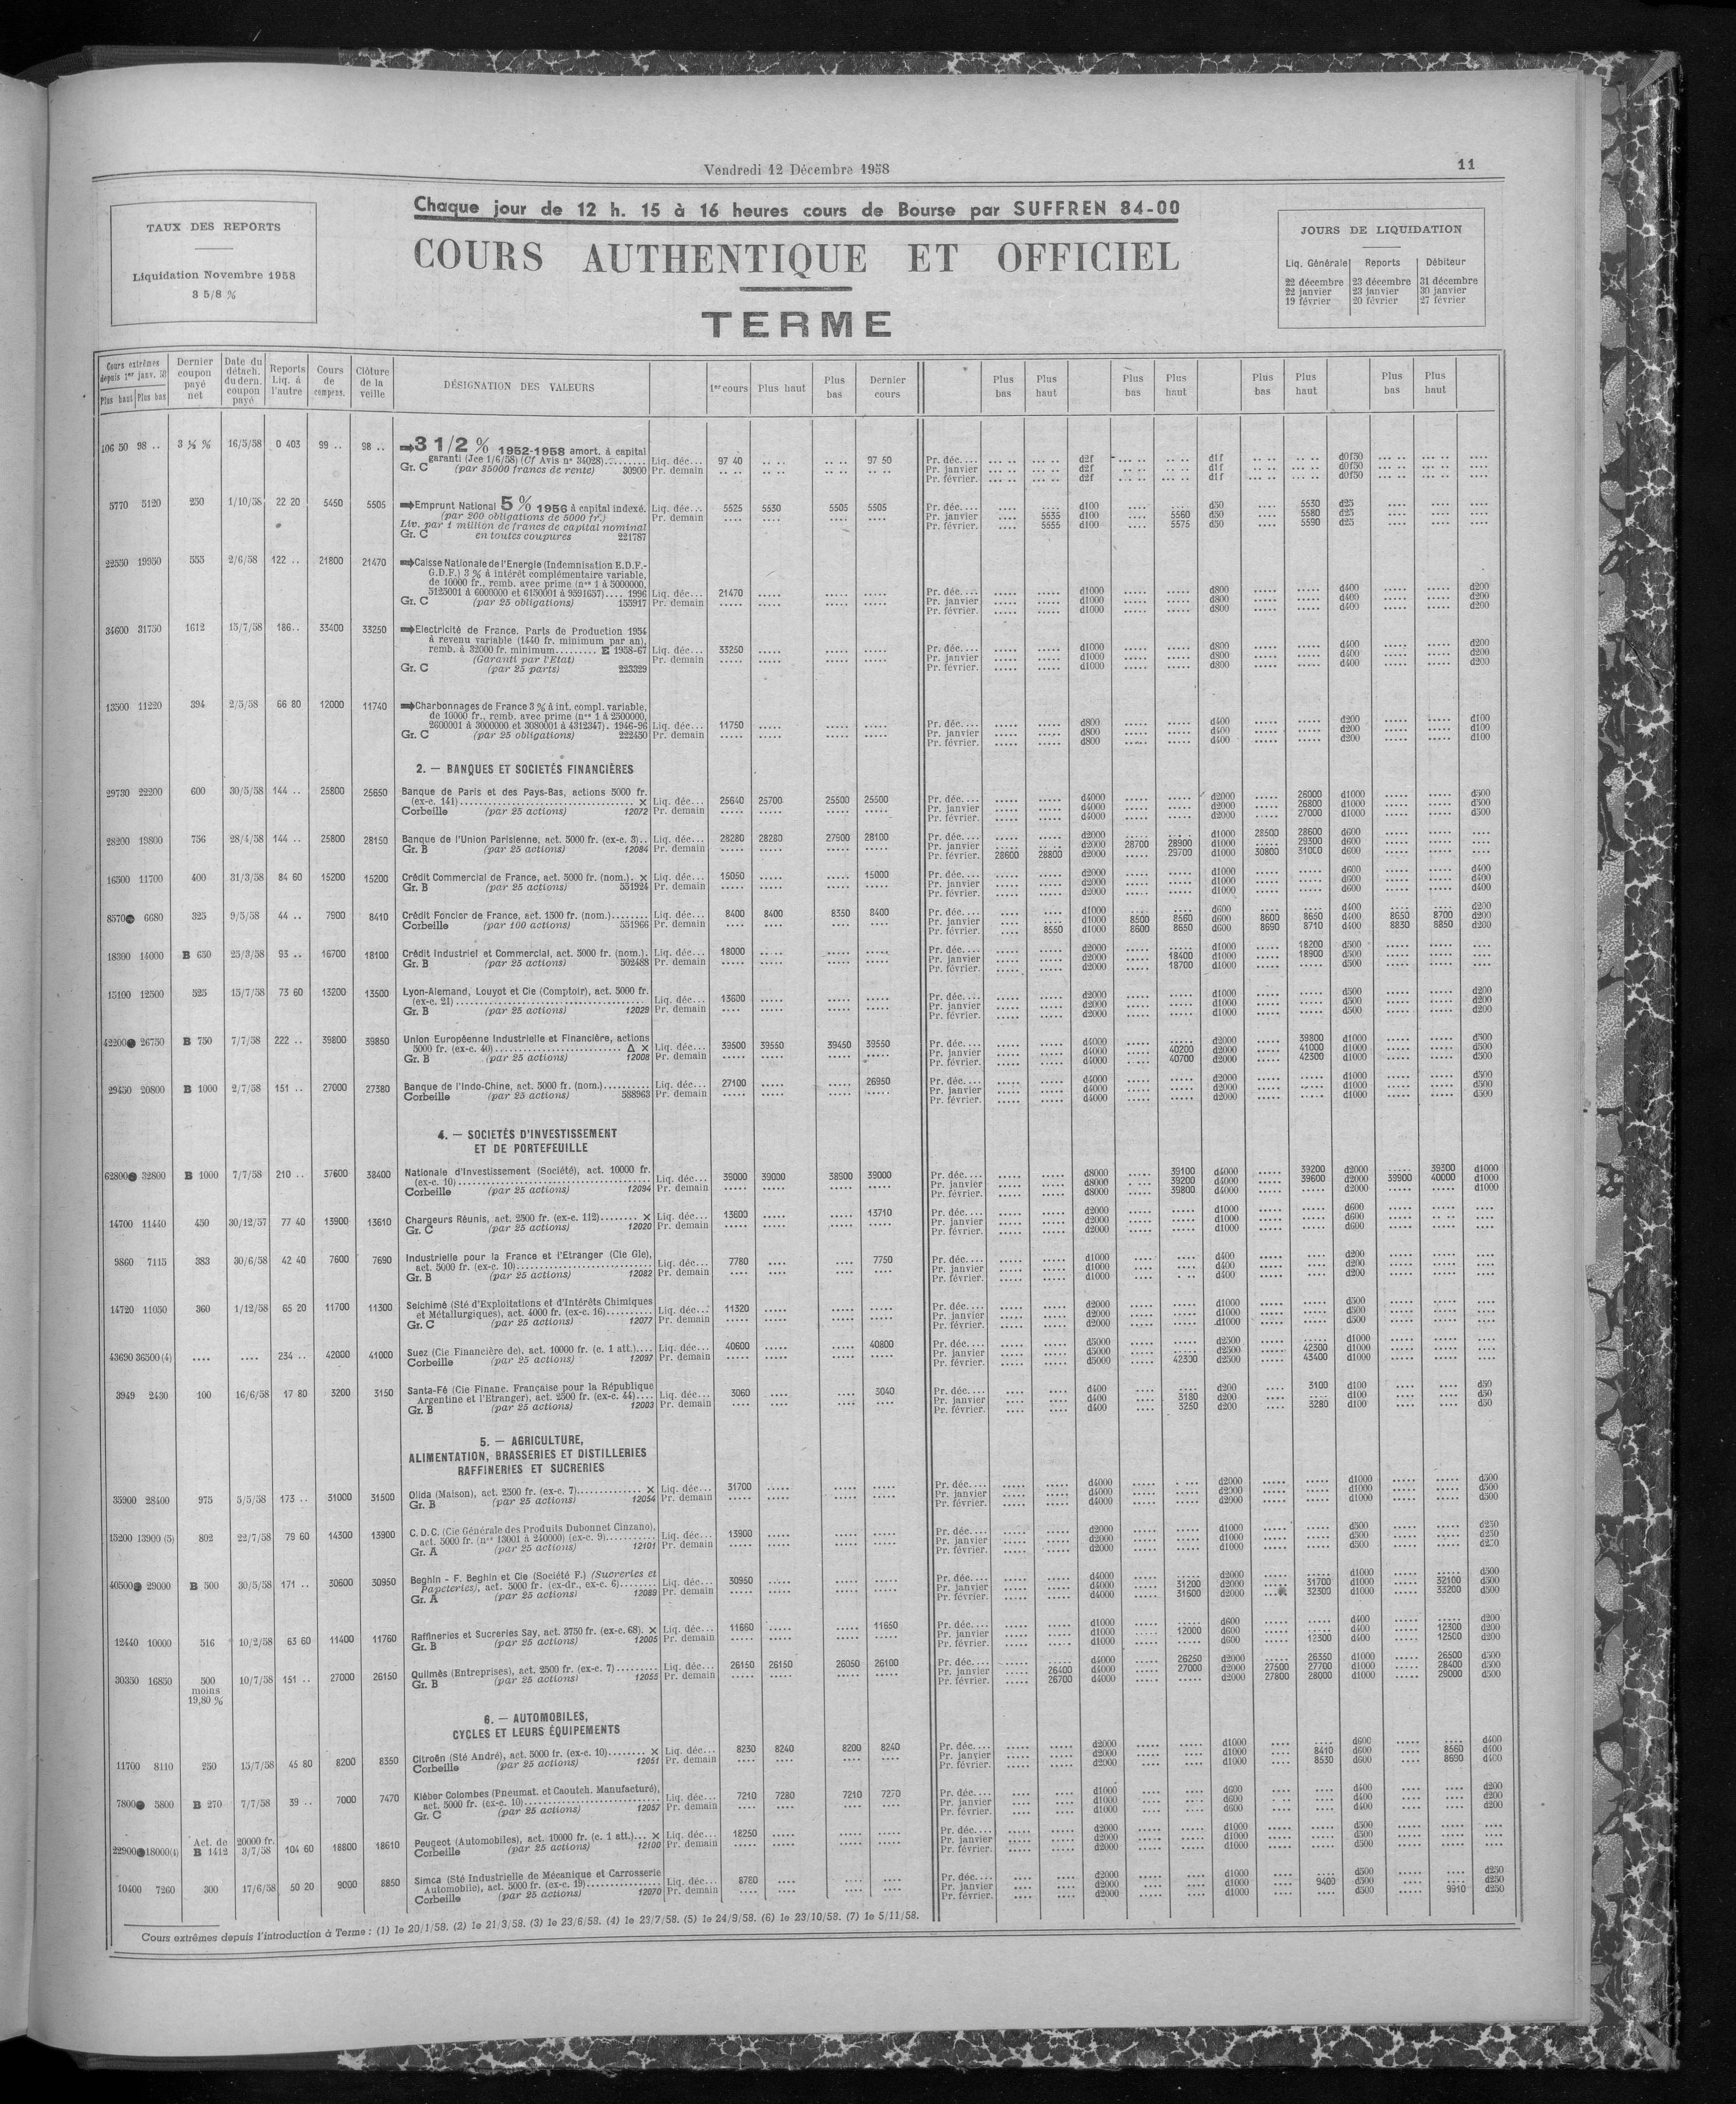 Vendredi 12 Décembre 1958
11
TAUX DES REPORTS
Liquidation Novembre 1958
3 5/8 %
Chaque jour de 12 h. 15 à 16 heures cours de Bourse par SUFFREN 84-00
COURS AUTHENTIQUE ET OFFICIEL
TERME
JOURS DE LIQUIDATION
Liq. Générale Reports Débiteur
22 décembre 23 décembre 31 décembre
22 janvier 23 janvier 30 janvier
19 février 20 février 27 février
Cours extrêmes depuis 1er janv. 58 Plus haut Plus bas
Dernier coupon payé net
Date du détach. du dern. coupon payé
Reports Liq. à l'autre
Cours de compens.
Clôture de la veille
DÉSIGNATION DES VALEURS
1er cours Plus haut Plus bas Dernier cours
Plus bas Plus haut Plus bas Plus haut Plus bas Plus haut Plus bas Plus haut
106 50 98 .. 3 ½ % 16/5/58 0 403 99 .. 98 .. 3 1/2 % 1952-1958 amort. à capital
garanti (Jce 1/6/58) (Cf Avis n° 34028) Liq. déc... 97 40 .. .. .. .. 97 50 Pr. déc.... d2f d1f d0f50
Gr. C (par 35000 francs de rente) 30900 Pr. demain Pr. janvier d2f d1f d0f50
Pr. février. d2f d1f d0f50
5770 5120 250 1/10/58 22 20 5450 5505 Emprunt National 5 % 1956 à capital indexé. Liq. déc... 5525 5530 5505 5505 Pr. déc.... d100 d50 5530 d25
(par 200 obligations de 5000 fr.) Pr. demain Pr. janvier 5535 d100 5560 d50 5580 d25
Liv. par 1 million de francs de capital nominal Pr. février. 5555 d100 5575 d50 5590 d25
Gr. C en toutes coupures 221787
22550 19950 555 2/6/58 122 .. 21800 21470 Caisse Nationale de l'Energie (Indemnisation E.D.F.-
G.D.F.) 3 % à intérêt complémentaire variable,
de 10000 fr., remb. avec prime (nos 1 à 5000000,
5125001 à 6000000 et 6150001 à 9591657).... 1996 Liq. déc... 21470 Pr. déc.... d1000 d800 d400 d200
Gr. C (par 25 obligations) 155917 Pr. demain Pr. janvier d1000 d800 d400 d200
Pr. février. d1000 d800 d400 d200
34600 31750 1612 15/7/58 186.. 33400 33250 Electricité de France. Parts de Production 1954
à revenu variable (1440 fr. minimum par an),
remb. à 32000 fr. minimum......... E 1958-67 Liq. déc... 33250 Pr. déc.... d1000 d800 d400 d200
(Garanti par l'Etat) Pr. demain Pr. janvier d1000 d800 d400 d200
Gr. C (par 25 parts) 223329 Pr. février. d1000 d800 d400 d200
13500 11220 394 2/5/58 66 80 12000 11740 Charbonnages de France 3 % à int. compl. variable,
de 10000 fr., remb. avec prime (nos 1 à 2500000,
2600001 à 3000000 et 3080001 à 4312347). 1946-96 Liq. déc... 11750 Pr. déc.... d800 d400 d200 d100
Gr. C (par 25 obligations) 222450 Pr. demain Pr. janvier d800 d400 d200 d100
Pr. février. d800 d400 d200 d100
2. — BANQUES ET SOCIETÉS FINANCIÈRES
29730 22200 600 30/5/58 144 .. 25800 25650 Banque de Paris et des Pays-Bas, actions 5000 fr.
(ex-c. 141) × Liq. déc... 25640 25700 25500 25500 Pr. déc.... d4000 d2000 26000 d1000 d500
Corbeille (par 25 actions) 12072 Pr. demain Pr. janvier d4000 d2000 26800 d1000 d500
Pr. février. d4000 d2000 27000 d1000 d500
28200 19800 756 28/4/58 144 .. 25800 28150 Banque de l'Union Parisienne, act. 5000 fr. (ex-c. 3).. Liq. déc... 28280 28280 27900 28100 Pr. déc.... d2000 d1000 28500 28600 d600
Gr. B (par 25 actions) 12084 Pr. demain Pr. janvier d2000 28700 28900 d1000 29300 d600
Pr. février. 28600 28800 d2000 29700 d1000 30800 31000 d600
16500 11700 400 31/3/58 84 60 15200 15200 Crédit Commercial de France, act. 5000 fr. (nom.). × Liq. déc... 15050 15000 Pr. déc.... d2000 d1000 d600 d400
Gr. B (par 25 actions) 551924 Pr. demain Pr. janvier d2000 d1000 d600 d400
Pr. février. d2000 d1000 d600 d400
8570● 6680 325 9/5/58 44 .. 7900 8410 Crédit Foncier de France, act. 1500 fr. (nom.)........ Liq. déc... 8400 8400 8350 8400 Pr. déc.... d1000 d600 d400 d200
Corbeille (par 100 actions) 551966 Pr. demain Pr. janvier d1000 8500 8560 d600 8600 8650 d400 8650 8700 d200
Pr. février. 8550 d1000 8600 8650 d600 8690 8710 d400 8830 8850 d200
18300 14000 B 650 25/3/58 93 .. 16700 18100 Crédit Industriel et Commercial, act. 5000 fr. (nom.). Liq. déc... 18000 Pr. déc.... d2000 d1000 18200 d500
Gr. B (par 25 actions) 502488 Pr. demain Pr. janvier d2000 18400 d1000 18900 d500
Pr. février. d2000 18700 d1000 d500
15100 12500 525 15/7/58 73 60 13200 13500 Lyon-Alemand, Louyot et Cie (Comptoir), act. 5000 fr.
(ex-c. 21) Liq. déc... 13600 Pr. déc.... d2000 d1000 d500 d200
Gr. B (par 25 actions) 12029 Pr. demain Pr. janvier d2000 d1000 d500 d200
Pr. février. d2000 d1000 d500 d200
42200● 26750 B 750 7/7/58 222 .. 39800 39850 Union Européenne Industrielle et Financière, actions
5000 fr. (ex-c. 40) Δ × Liq. déc... 39500 39550 39450 39550 Pr. déc.... d4000 d2000 39800 d1000 d500
Gr. B (par 25 actions) 12008 Pr. demain Pr. janvier d4000 40200 d2000 41000 d1000 d500
Pr. février. d4000 40700 d2000 42300 d1000 d500
29450 20800 B 1000 2/7/58 151 .. 27000 27380 Banque de l'Indo-Chine, act. 5000 fr. (nom.).......... Liq. déc... 27100 26950 Pr. déc.... d4000 d2000 d1000 d500
Corbeille (par 25 actions) 588963 Pr. demain Pr. janvier d4000 d2000 d1000 d500
Pr. février. d4000 d2000 d1000 d500
4. — SOCIETÉS D'INVESTISSEMENT
ET DE PORTEFEUILLE
62800● 32800 B 1000 7/7/58 210 .. 37600 38400 Nationale d'Investissement (Société), act. 10000 fr.
(ex-c. 10) Liq. déc... 39000 39000 38900 39000 Pr. déc.... d8000 39100 d4000 39200 d2000 39300 d1000
Corbeille (par 25 actions) 12094 Pr. demain Pr. janvier d8000 39200 d4000 39600 d2000 39900 40000 d1000
Pr. février. d8000 39800 d4000 d2000 d1000
14700 11440 450 30/12/57 77 40 13900 13610 Chargeurs Réunis, act. 2500 fr. (ex-c. 112)........ × Liq. déc... 13600 13710 Pr. déc.... d2000 d1000 d600
Gr. C (par 25 actions) 12020 Pr. demain Pr. janvier d2000 d1000 d600
Pr. février. d2000 d1000 d600
9860 7115 383 30/6/58 42 40 7600 7690 Industrielle pour la France et l'Etranger (Cie Gle),
act. 5000 fr. (ex-c. 10) Liq. déc... 7780 7750 Pr. déc.... d1000 d400 d200
Gr. B (par 25 actions) 12082 Pr. demain Pr. janvier d1000 d400 d200
Pr. février. d1000 d400 d200
14720 11050 360 1/12/58 65 20 11700 11300 Selchimé (Sté d'Exploitations et d'Intérêts Chimiques
et Métallurgiques), act. 4000 fr. (ex-c. 16).......... Liq. déc... 11320 Pr. déc.... d2000 d1000 d500
Gr. C (par 25 actions) 12077 Pr. demain Pr. janvier d2000 d1000 d500
Pr. février. d2000 d1000 d500
43690 36500 (4) .... .... 234 .. 42000 41000 Suez (Cie Financière de), act. 10000 fr. (c. 1 att.).... Liq. déc... 40600 40800 Pr. déc.... d5000 d2500 d1000
Corbeille (par 25 actions) 12097 Pr. demain Pr. janvier d5000 d2500 42300 d1000
Pr. février. d5000 42300 d2500 43400 d1000
3949 2430 100 16/6/58 17 80 3200 3150 Santa-Fé (Cie Financ. Française pour la République
Argentine et l'Etranger), act. 2500 fr. (ex-c. 44).... Liq. déc... 3060 3040 Pr. déc.... d400 d200 3100 d100 d50
Gr. B (par 25 actions) 12003 Pr. demain Pr. janvier d400 3180 d200 d100 d50
Pr. février. d400 3250 d200 3280 d100 d50
5. — AGRICULTURE,
ALIMENTATION, BRASSERIES ET DISTILLERIES
RAFFINERIES ET SUCRERIES
35900 28400 975 5/5/58 173 .. 31000 31500 Olida (Maison), act. 2500 fr. (ex-c. 7)............. × Liq. déc... 31700 Pr. déc.... d4000 d2000 d1000 d500
Gr. B (par 25 actions) 12054 Pr. demain Pr. janvier d4000 d2000 d1000 d500
Pr. février. d4000 d2000 d1000 d500
15200 13900 (5) 802 22/7/58 79 60 14300 13900 C. D. C. (Cie Générale des Produits Dubonnet Cinzano),
act. 5000 fr. (nos 13001 à 240000) (ex-c. 9).......... Liq. déc... 13900 Pr. déc.... d2000 d1000 d500 d250
Gr. A (par 25 actions) 12101 Pr. demain Pr. janvier d2000 d1000 d500 d250
Pr. février. d2000 d1000 d500 d250
40500● 29000 B 500 30/5/58 171 .. 30600 30950 Beghin - F. Beghin et Cie (Société F.) (Sucreries et
Papeteries), act. 5000 fr. (ex-dr., ex-c. 6)........ Liq. déc... 30950 Pr. déc.... d4000 d2000 d1000 d500
Gr. A (par 25 actions) 12089 Pr. demain Pr. janvier d4000 31200 d2000 31700 d1000 32100 d500
Pr. février. d4000 31600 d2000 32300 d1000 33200 d500
12440 10000 516 10/2/58 63 60 11400 11760 Raffineries et Sucreries Say, act. 3750 fr. (ex-c. 68). × Liq. déc... 11660 11650 Pr. déc.... d1000 d600 d400 d200
Gr. B (par 25 actions) 12005 Pr. demain Pr. janvier d1000 12000 d600 d400 12300 d200
Pr. février. d1000 d600 12300 d400 12500 d200
30350 16850 500 moins 19,80 % 10/7/58 151 .. 27000 26150 Quilmès (Entreprises), act. 2500 fr. (ex-c. 7)......... Liq. déc... 26150 26150 26050 26100 Pr. déc.... d4000 26250 d2000 26350 d1000 26500 d500
Gr. B (par 25 actions) 12055 Pr. demain Pr. janvier 26400 d4000 27000 d2000 27500 27700 d1000 28400 d500
Pr. février. 26700 d4000 d2000 27800 28000 d1000 29000 d500
6. — AUTOMOBILES,
CYCLES ET LEURS ÉQUIPEMENTS
11700 8110 250 15/7/58 45 80 8200 8350 Citroën (Sté André), act. 5000 fr. (ex-c. 10)........ × Liq. déc... 8230 8240 8200 8240 Pr. déc.... d2000 d1000 d600 d400
Corbeille (par 25 actions) 12051 Pr. demain Pr. janvier d2000 d1000 8410 d600 8560 d400
Pr. février. d2000 d1000 8530 d600 8690 d400
7800● 5800 B 270 7/7/58 39 .. 7000 7470 Kléber Colombes (Pneumat. et Caoutch. Manufacturé),
act. 5000 fr. (ex-c. 10) Liq. déc... 7210 7280 7210 7270 Pr. déc.... d1000 d600 d400 d200
Gr. C (par 25 actions) 12057 Pr. demain Pr. janvier d1000 d600 d400 d200
Pr. février. d1000 d600 d400 d200
22900● 18000(4) Act. de 20000 fr. B 1412 3/7/58 104 60 18800 18610 Peugeot (Automobiles), act. 10000 fr. (c. 1 att.)... × Liq. déc... 18250 Pr. déc.... d2000 d1000 d500
Corbeille (par 25 actions) 12100 Pr. demain Pr. janvier d2000 d1000 d500
Pr. février. d2000 d1000 d500
10400 7260 300 17/6/58 50 20 9000 8850 Simca (Sté Industrielle de Mécanique et Carrosserie
Automobile), act. 5000 fr. (ex-c. 19).............. Liq. déc... 8780 Pr. déc.... d2000 d1000 d500 d250
Corbeille (par 25 actions) 12070 Pr. demain Pr. janvier d2000 d1000 9400 d500 d250
Pr. février. d2000 d1000 d500 9910 d250
Cours extrêmes depuis l'introduction à Terme : (1) le 20/1/58. (2) le 21/3/58. (3) le 23/6/58. (4) le 23/7/58. (5) le 24/9/58. (6) le 23/10/58. (7) le 5/11/58.